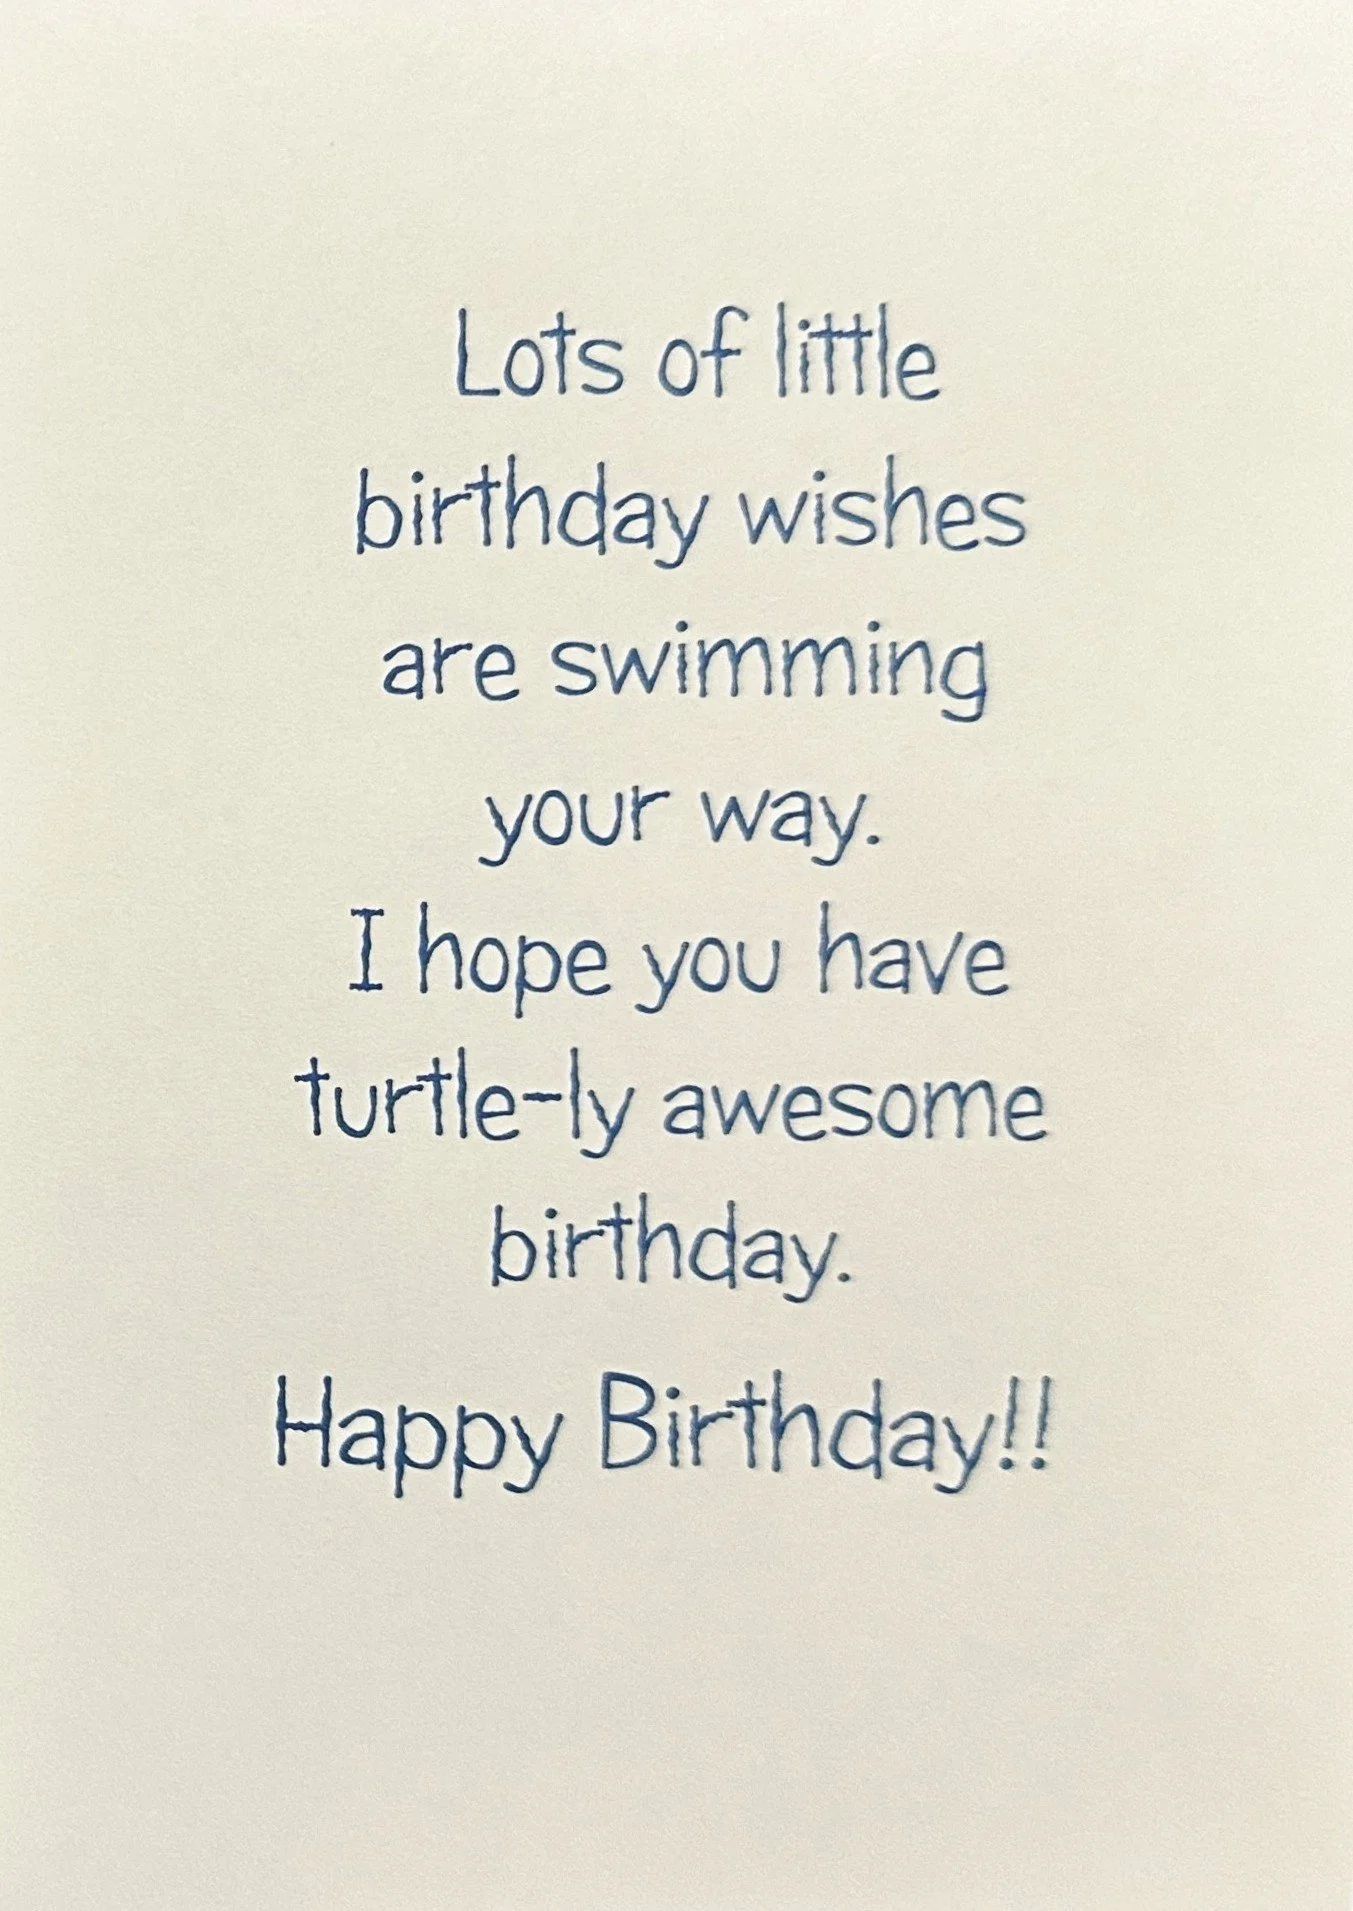 Lots of little
birthday wishes
are swimming
your way.
I hope you have
turtle-ly awesome
birthday.
Happy Birthday!!